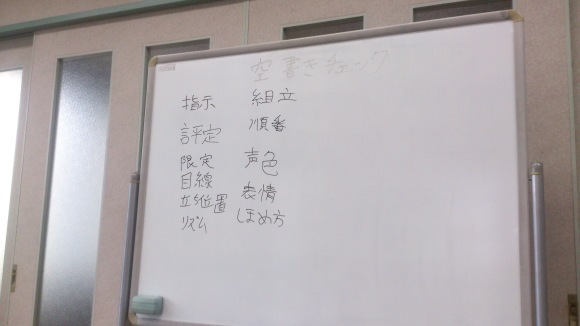 空書きチェック
指示
評定
限定
目線
立ち位置
リズム
組立
順番
声色
表情
ほめ方